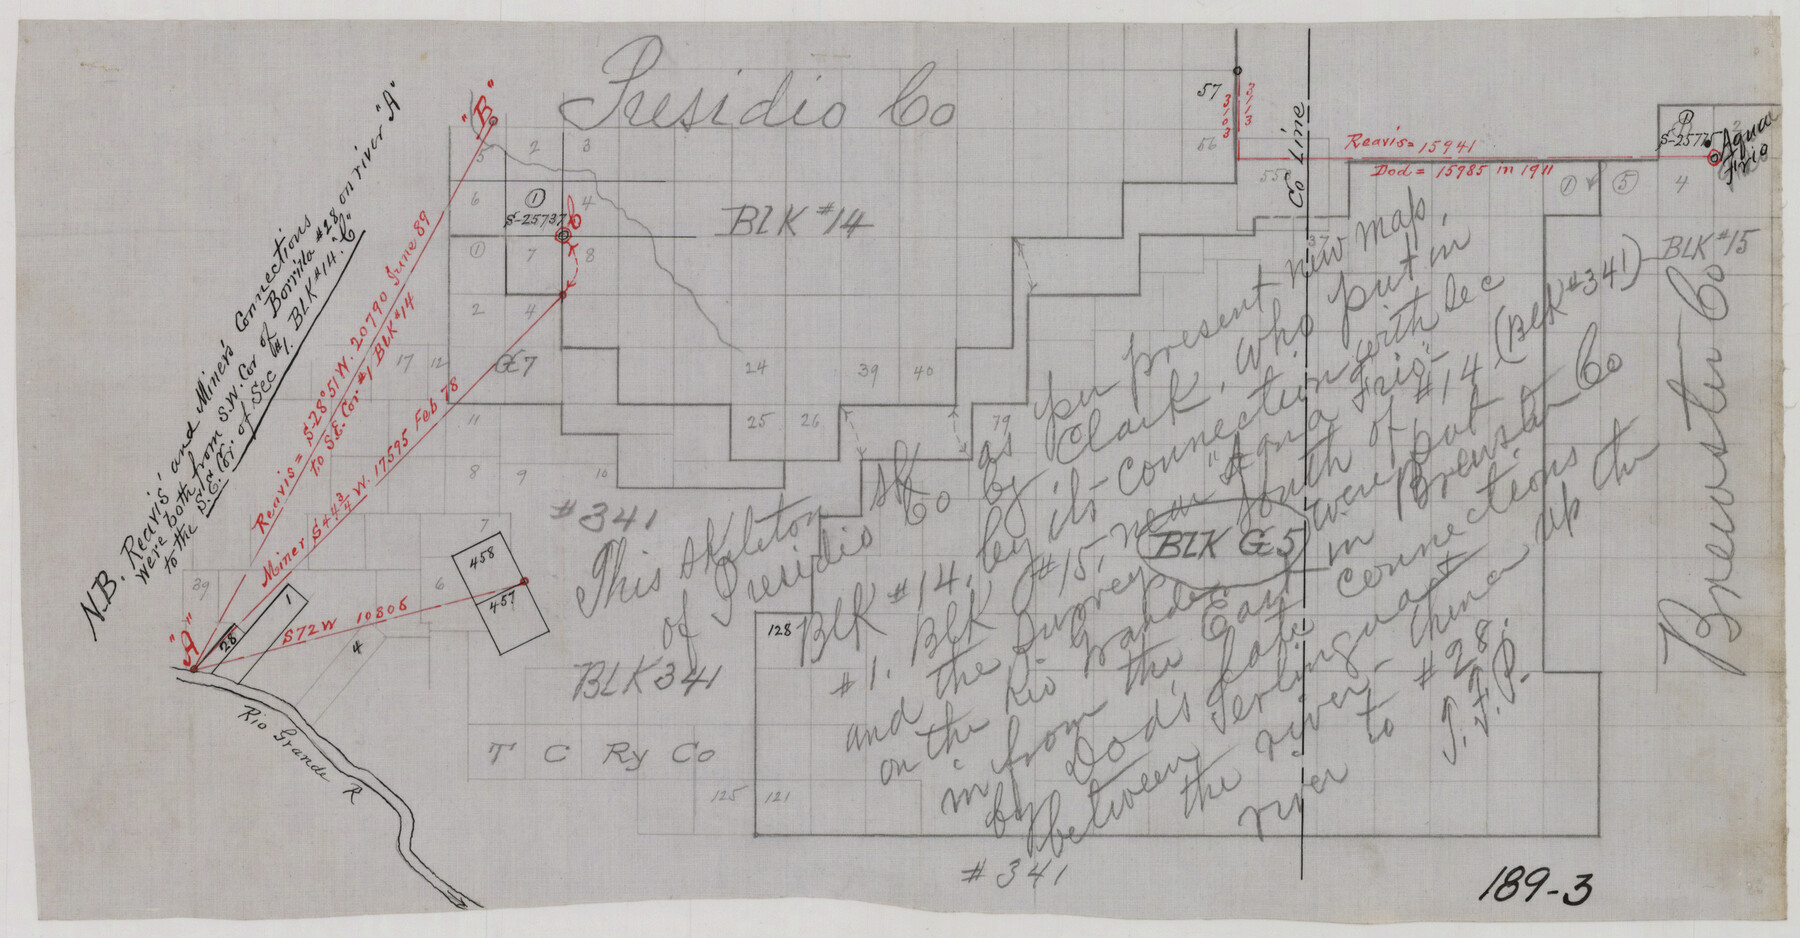 Presidio Co
"B"
N.B. Reavis' and Miner's Connections
were both from S.W. Cor of Borrilla #28 on river "A"
to the S.E. Cor. of Sec #1. BLK #14. "C"
Reavis = S-28°51 W. 20790 June 89
to S.E. Cor #1 BLK #14
Miner S 44 3/4 W. 17595 Feb 78
S72W 10805
"A"
28
1
4
39
Rio Grande R
5
2
3
6
1
S-25737
4
"C"
1
7
8
2
4
GE 7
17
12
11
8
9
10
7
6
458
457
BLK #14
24
39
40
25
26
79
57
3103
3113
56
55
Co Line
37
Reavis = 15941
Dod = 15985 in 1911
1
S-25775
2
Agua Frio
1
5
4
BLK #15
Brewster Co
#341
This skeleton sk as per present new map,
of Presidio Co by Clark, who put in
BLK #14, by its connection with Sec
#1. BLK #15, near "Agua Frio"
and the Surveys South of #14 (BLK #341)
on the Rio Grande were put
in from the East in Brewster Co
by Dod's late connections
between Terlingua &
the river - thence up the
river to #28.
J.F.P.
BLK GE 5
BLK 341
128
T C Ry Co
125
121
#341
189-3